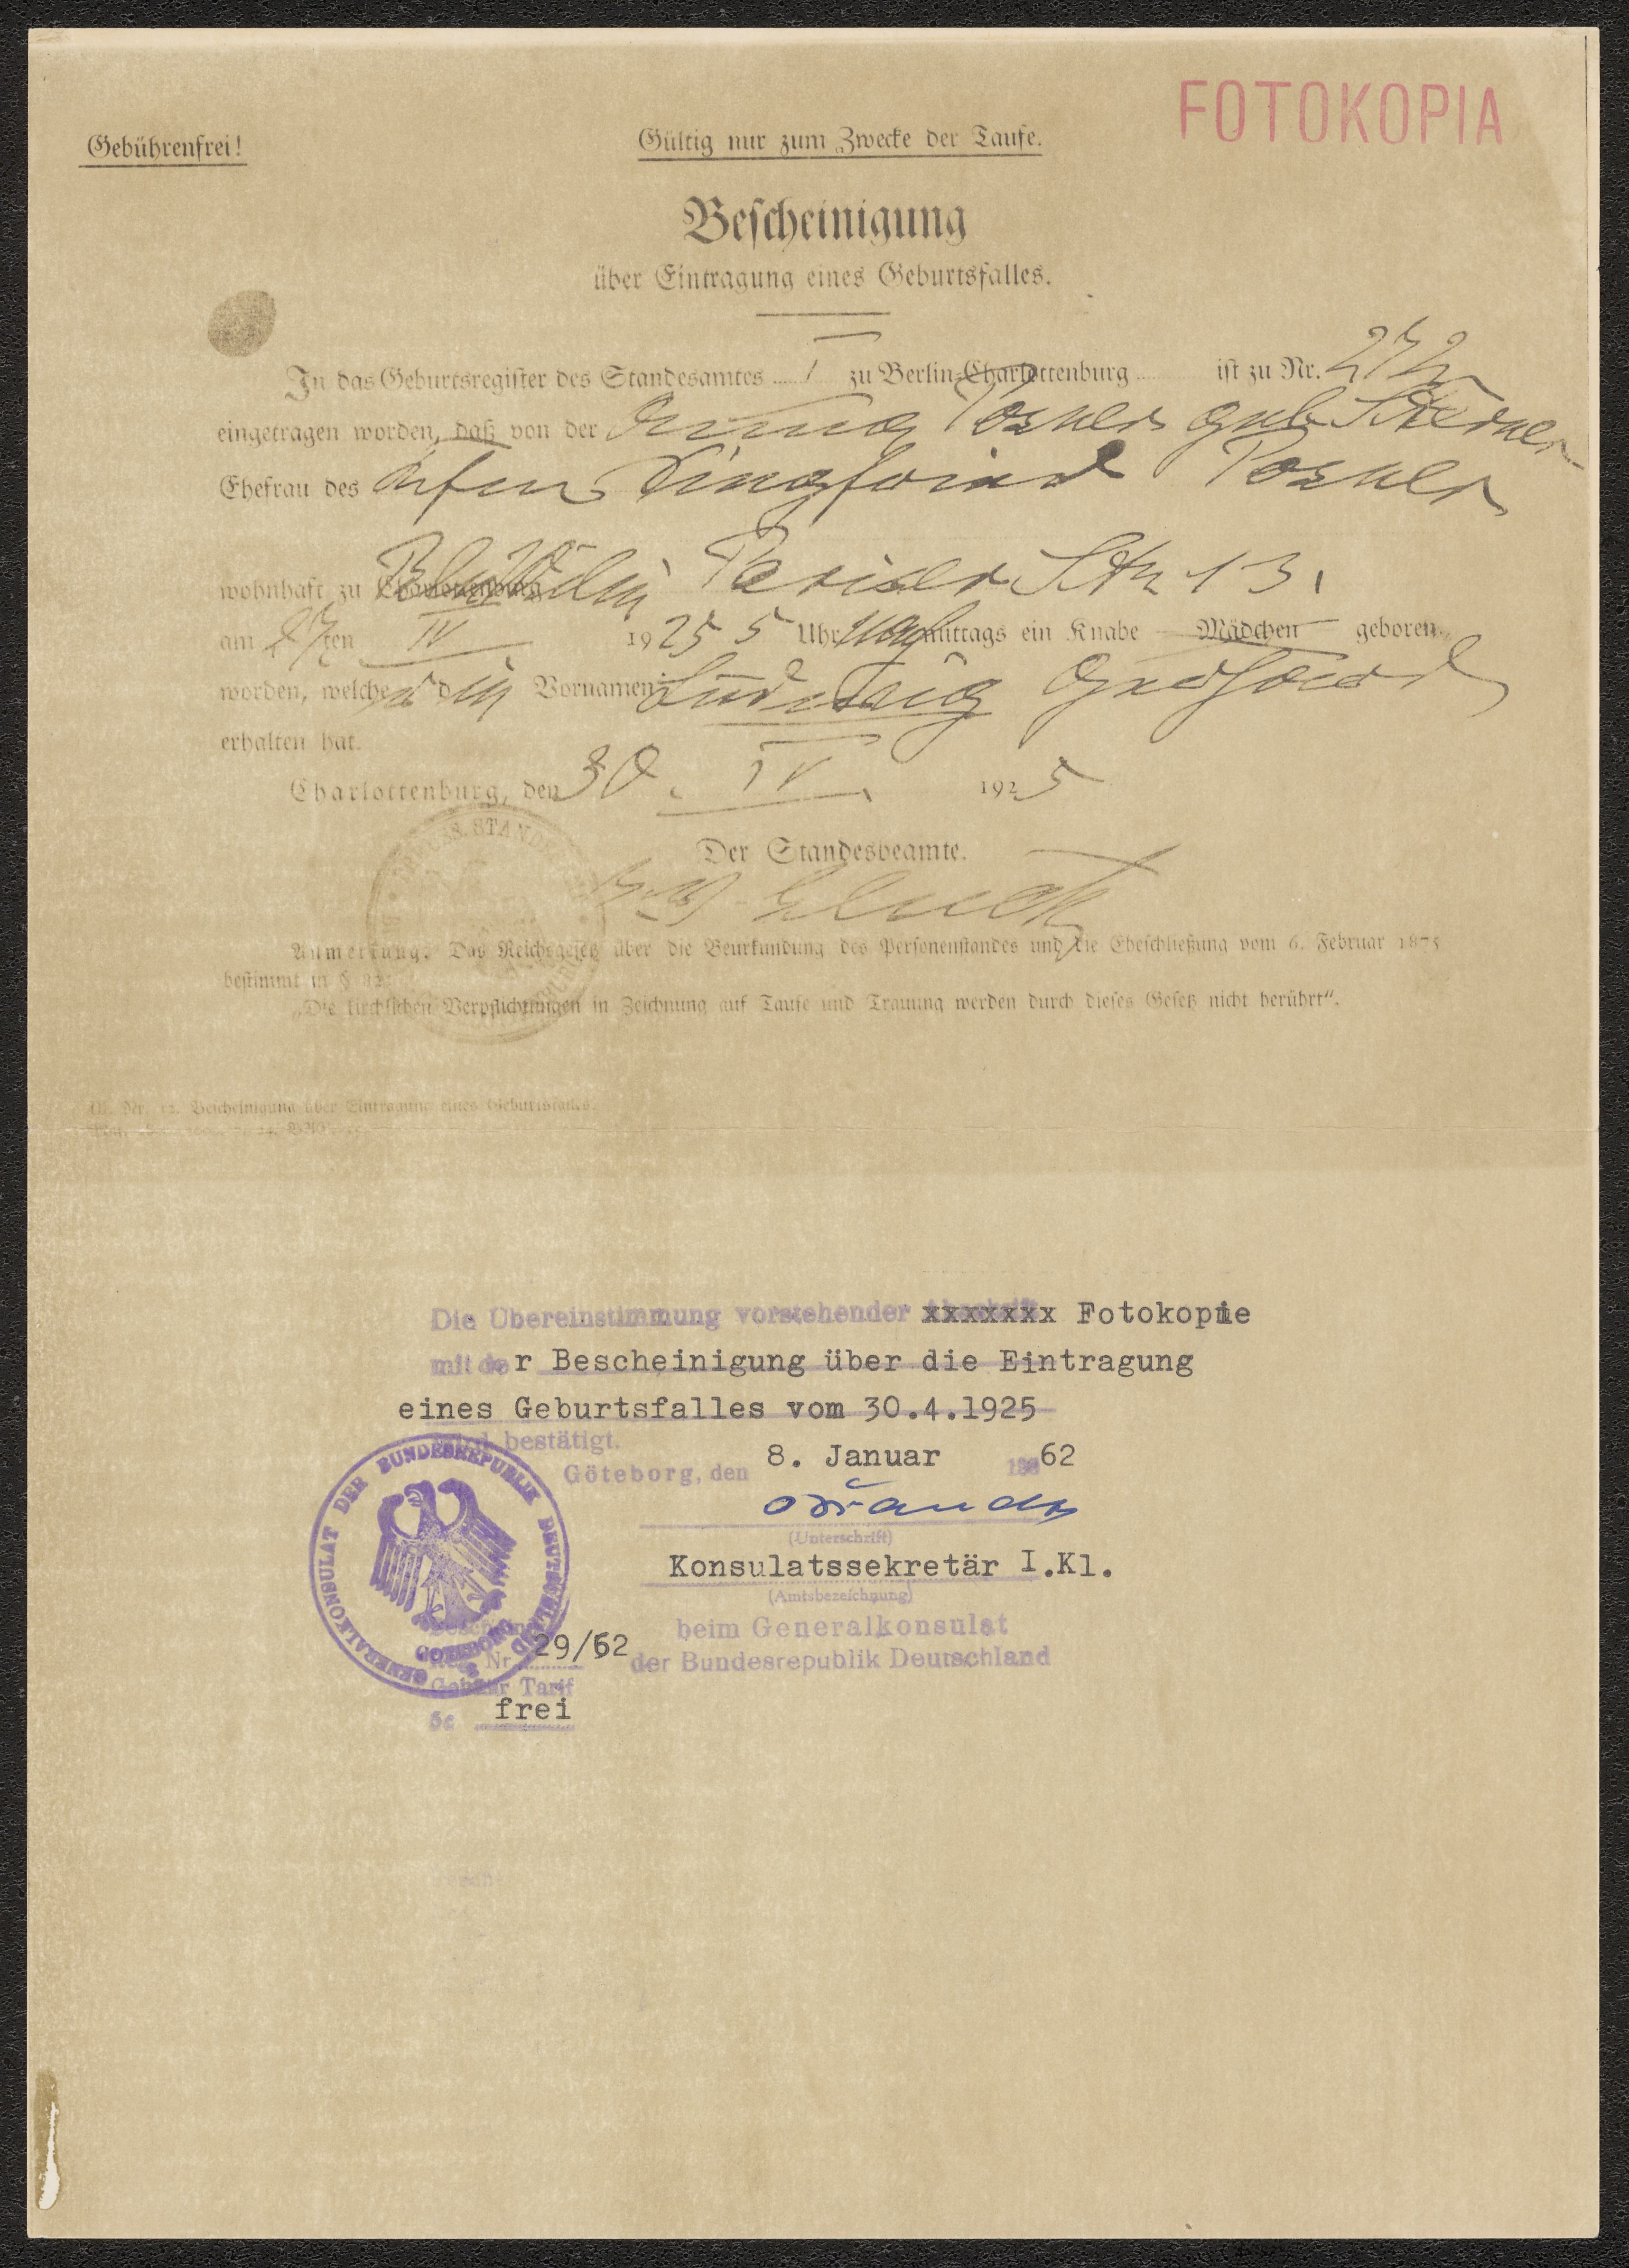 FOTOKOPIA
Gebührenfrei!
Gültig nur zum Zwecke der Taufe.
Bescheinigung
über Eintragung eines Geburtsfalles.
In das Geburtsregister des Standesamtes I zu Berlin-Charlottenburg ist zu Nr. 272
eingetragen worden, daß von der Posner geb. Sterner
Ehefrau des Posner
wohnhaft zu Charlottenburg Pariser Str 13.
am 27ten IV 1925 5 Uhr nachmittags ein Knabe Mädchen geboren
worden, welcher den Vornamen: Ludwig Gerhard
erhalten hat.
Charlottenburg, den 30. IV. 1925
Der Standesbeamte.
PREUSS. STANDES
Anmerkung: Das Reichsgesetz über die Beurkundung des Personenstandes und die Eheschließung vom 6. Februar 1875
bestimmt in § 82:
„Die kirchlichen Verpflichtungen in Zeichnung auf Taufe und Trauung werden durch dieses Gesetz nicht berührt“.
Bescheinigung über Eintragung eines Geburtsfalles.
Die Übereinstimmung vorstehender xxxxxxx Fotokopie
mit der Bescheinigung über die Eintragung
eines Geburtsfalles vom 30.4.1925
wird bestätigt.
Göteborg, den 8. Januar 62
(Unterschrift)
Konsulatssekretär I.Kl.
(Amtsbezeichnung)
beim Generalkonsulat
der Bundesrepublik Deutschland
GENERALKONSULAT DER BUNDESREPUBLIK DEUTSCHLAND
GÖTEBORG
Nr. 29/62
Gebühr Tarif
frei